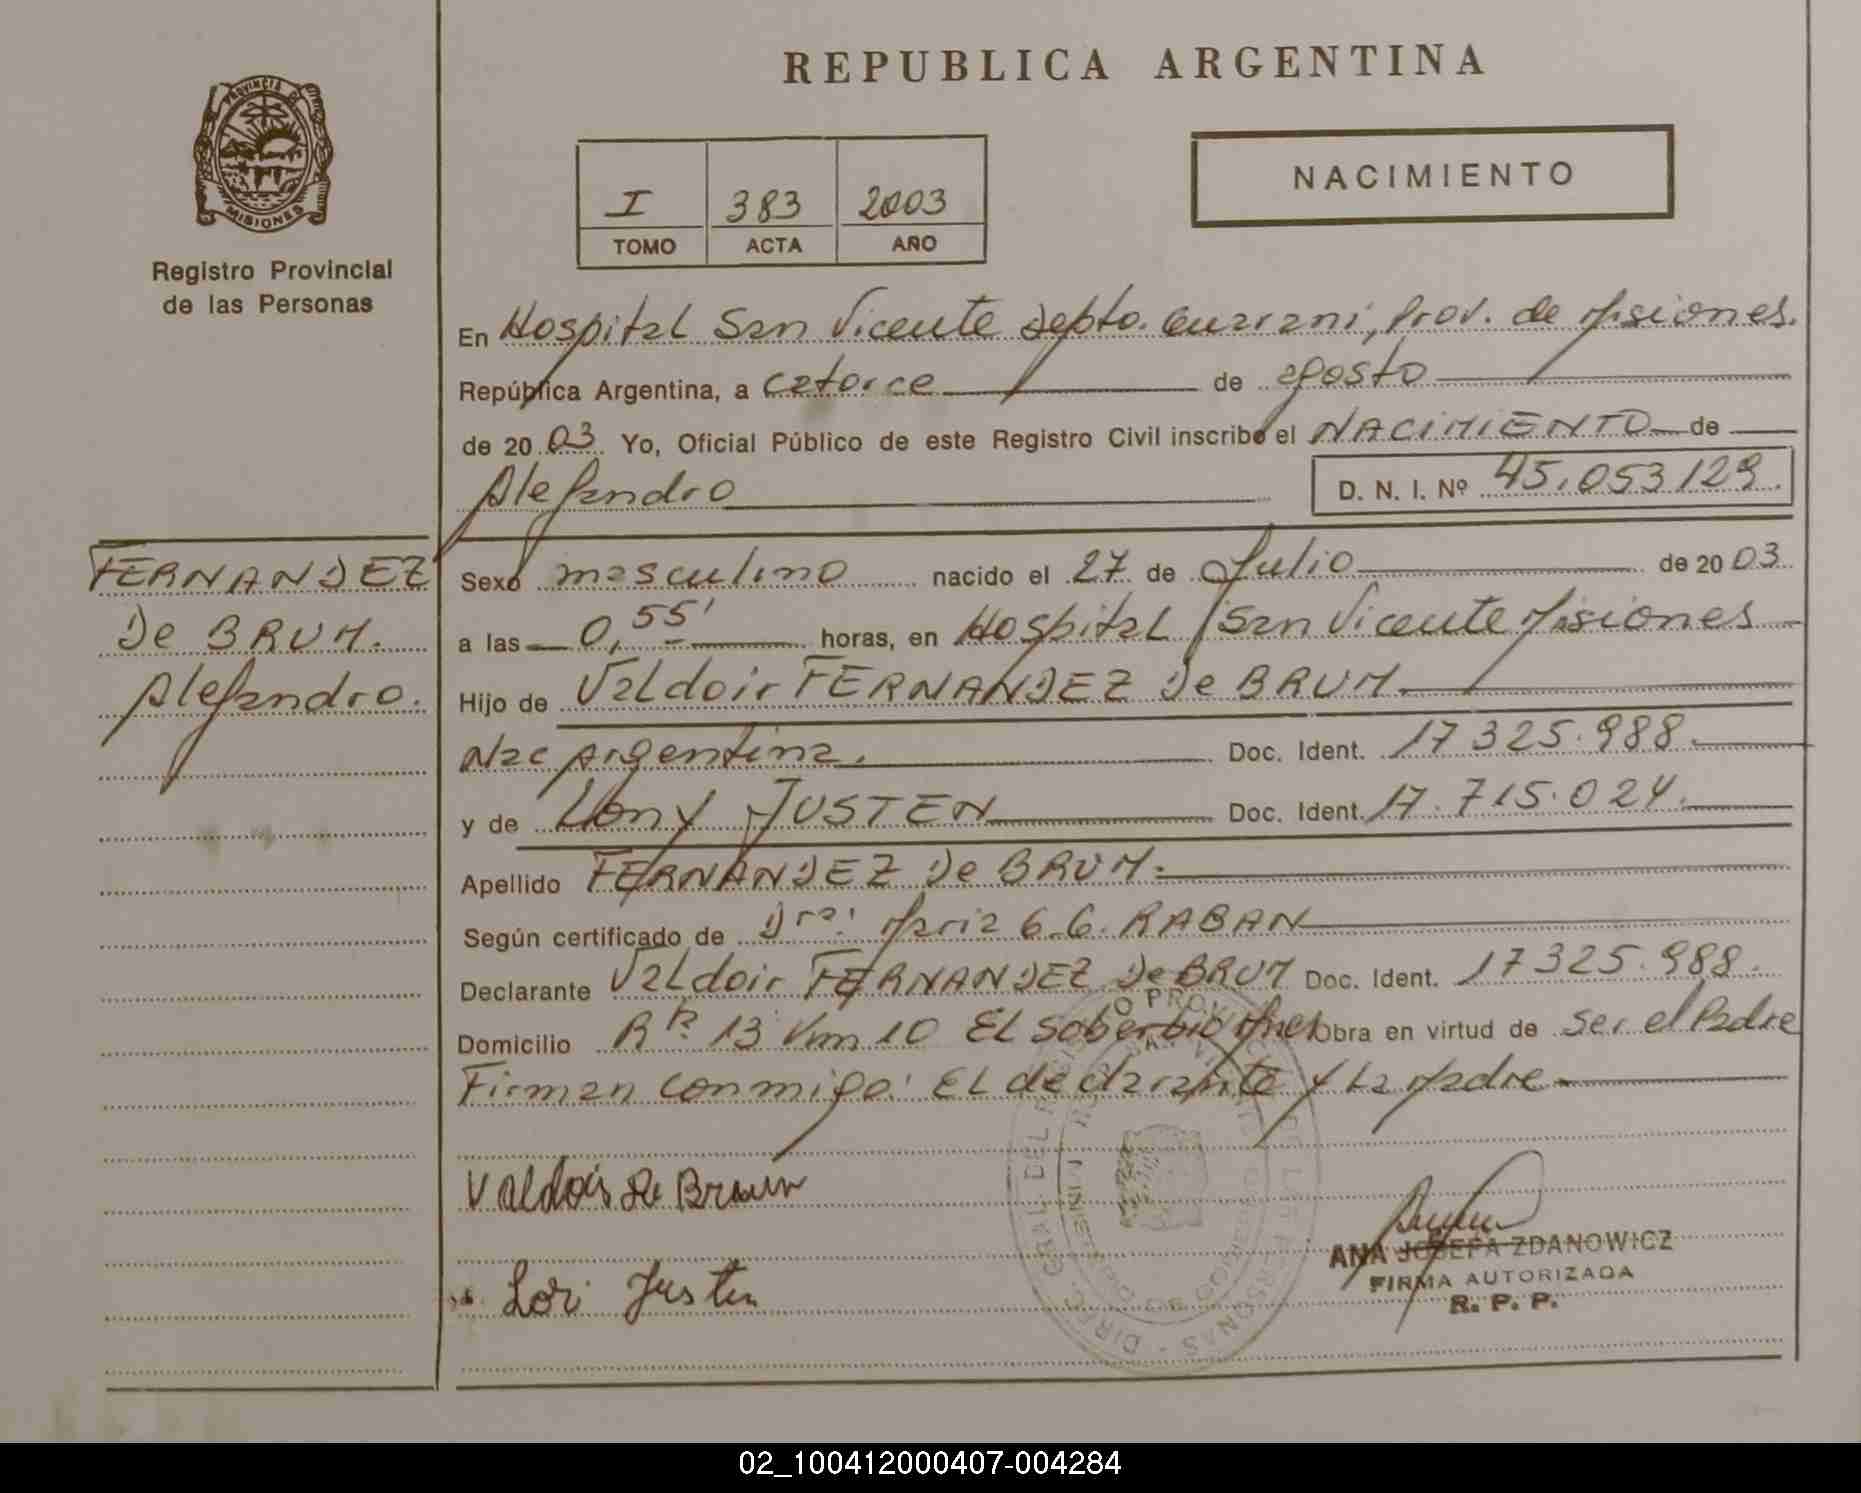 REPUBLICA ARGENTINA
PROVINCIA DE
MISIONES
Registro Provincial
de las Personas
I 383 2003
TOMO ACTA AÑO
NACIMIENTO
En Hospital San Vicente Depto. Guarani, Prov. de Misiones.
República Argentina, a catorce de agosto
de 2003 Yo, Oficial Público de este Registro Civil inscribo el NACIMIENTO de
Alejandro
D. N. I. Nº 45.053129.
FERNANDEZ
De BRUM.
Alejandro.
Sexo masculino nacido el 27 de Julio de 2003
a las 0,55' horas, en Hospital San Vicente Misiones
Hijo de Valdoir FERNANDEZ De BRUM.
Nac Argentina. Doc. Ident. 17 325.988.
y de Lony JUSTEN Doc. Ident. 17.715.024.
Apellido FERNANDEZ De BRUM.
Según certificado de Dra: Maria G.G. RABAN
Declarante Valdoir FERNANDEZ De BRUM Doc. Ident. 17325.988.
Domicilio 13 Km 10 El Soberbio Mnes Obra en virtud de Ser el Padre
Firman conmigo: El declarante y La Madre
Valdoir De Brum
Lori Justen
ANA JOSEFA ZDANOWICZ
FIRMA AUTORIZADA
R. P. P.
02_100412000407-004284